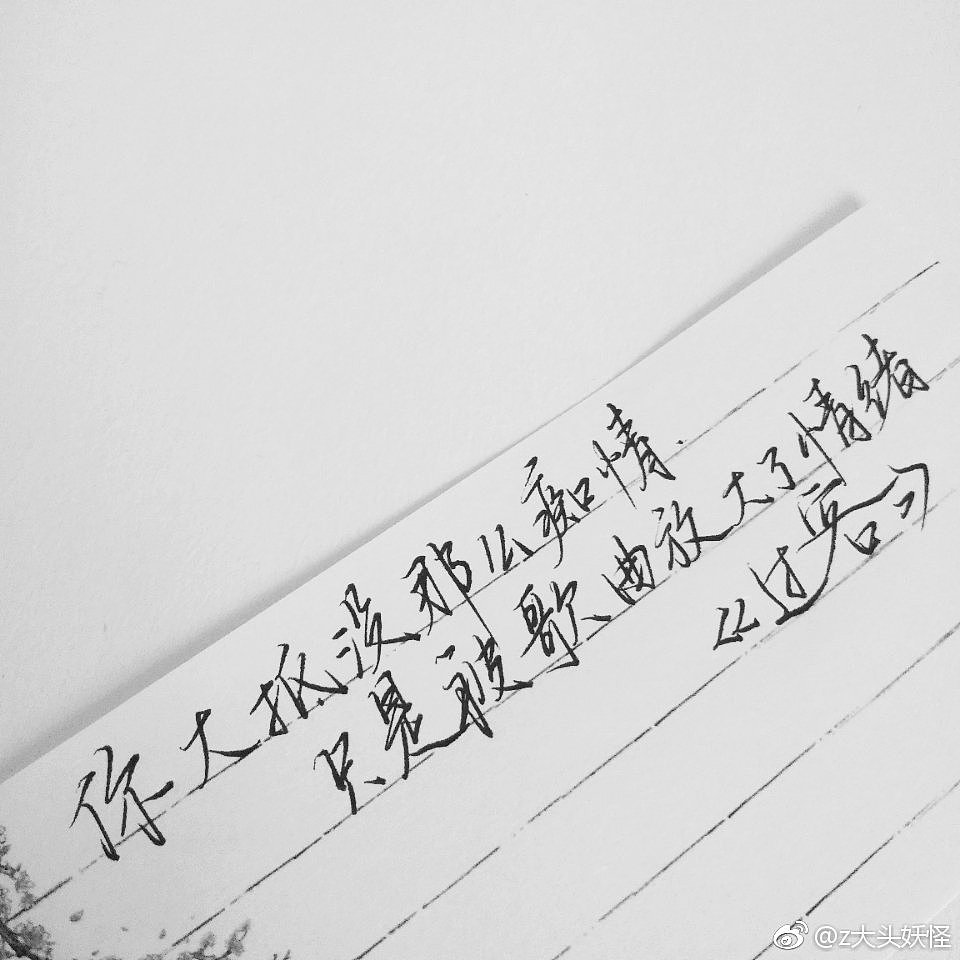 你大抵没那么痴情.
只是被歌曲放大了情绪
《过客》
@z大头妖怪